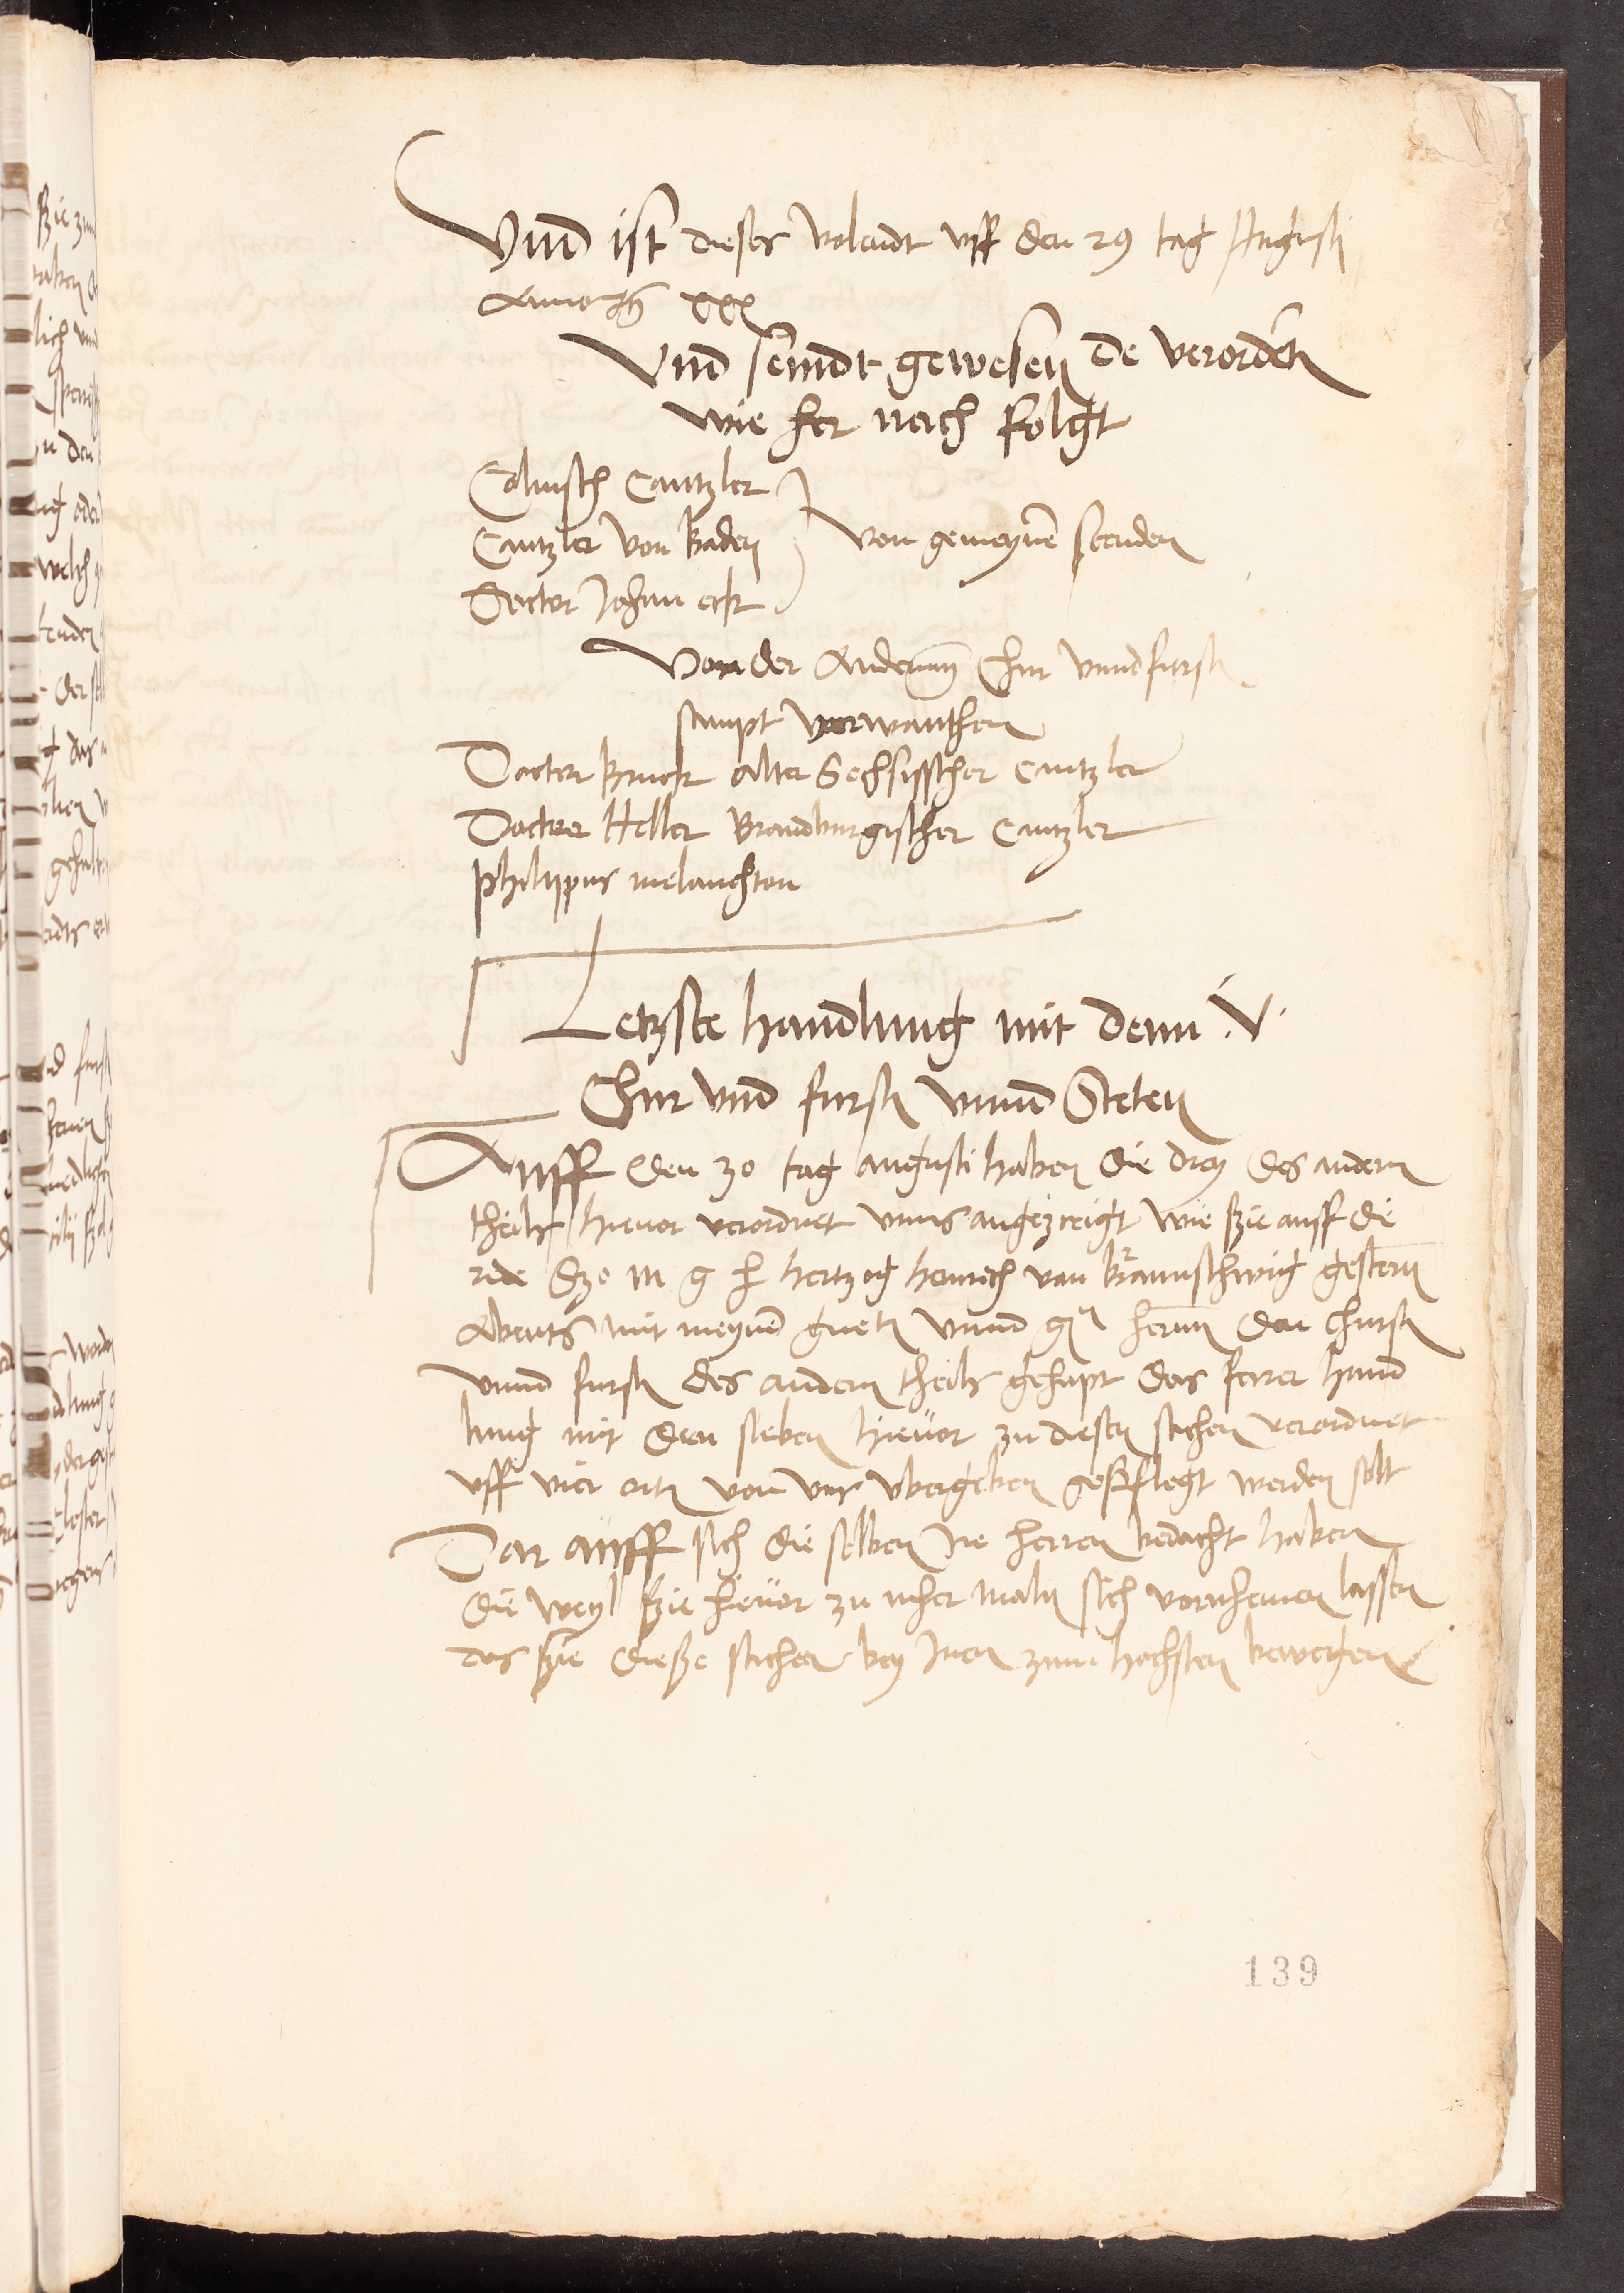 Vnnd ist dieses volendt vff den 29 tag Augusti
Anno xxx
Vnnd seindt gewesen de verordeten
wie her nach folgt
Colnisch Cantzler
Cantzler von Baden
von gemeynen stenden
Doctor Johan eck
Von der Anderenn Chur vnnd fursten
sampt vorwanthen
Doctor Bruck alter Sechsisscher Cantzler
Doctor Heller Brandburgischer Cantzler
Philippus melanchton
Letzste handlung mit denn .V.
Chur vnd fursten vnnd Steten
Auff den 30 tag augusti haben die drey des andern
theils hieuor verordnet vnns angezeeigt wie sie auff die
rede szo m g h hertzog heinrich van Braunschwig gestern
Abents mit meynen gneten vnnd gn herrnn den Chursten
vnnd fursten des andern theils gehapt das ferer hand
lung mit den sieben hieuor zu diesen sachen verordnet
vff vier orten von vns vbergeben gepflegt werden solt
Dar auff sich die selben ire herren bedacht haben
die weyl sie hieuor zu mher maln sich vornhemen lassen
das sie diesze sachen bey inen zum hochsten bewegen
139